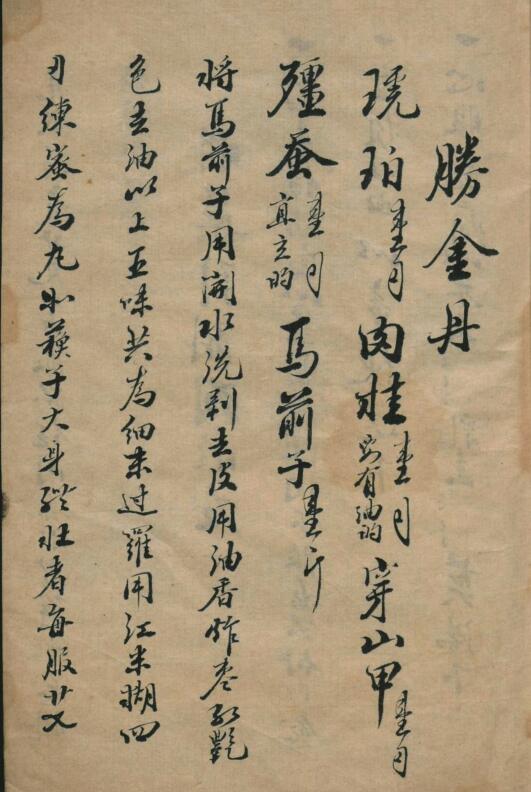 勝金丹
琥珀壹両肉桂壹両要有油的穿山甲壹両
殭蚕壹両直立的馬前子斤
将馬前子用開水洗剥去皮用油香炸枣红艷
色去油以上五味共為細末过羅用江米糊四
両練蜜為丸如蘓子大身強壮者每服